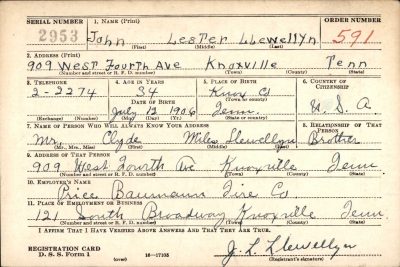 SERIAL NUMBER 1. NAME (Print) ORDER NUMBER
2953 John Lester Llewellyn 591
(First) (Middle) (Last)
2. ADDRESS (Print)
909 West Fourth Ave Knoxville Tenn
(Number and street or R. F. D. number) (Town) (County) (State)
3. TELEPHONE 4. AGE IN YEARS 5. PLACE OF BIRTH 6. COUNTRY OF CITIZENSHIP
2-2274 34 Knox Co
DATE OF BIRTH (Town or county)
July 12 1906 Tenn. U. S. A.
(Exchange) (Number) (Mo.) (Day) (Yr.) (State or country)
7. NAME OF PERSON WHO WILL ALWAYS KNOW YOUR ADDRESS 8. RELATIONSHIP OF THAT PERSON
Mr. Clyde Miles Llewellyn Brother
(Mr., Mrs., Miss) (First) (Middle) (Last)
9. ADDRESS OF THAT PERSON
909 West Fourth Ave Knoxville Tenn
(Number and street or R. F. D. number) (Town) (County) (State)
10. EMPLOYER'S NAME
Price Baumann Tire Co
11. PLACE OF EMPLOYMENT OR BUSINESS
121 South Broadway Knoxville Tenn
(Number and street or R. F. D. number) (Town) (County) (State)
I AFFIRM THAT I HAVE VERIFIED ABOVE ANSWERS AND THAT THEY ARE TRUE.
REGISTRATION CARD
D. S. S. Form 1 16—17105 J. L. Llewellyn
(Registrant's signature)